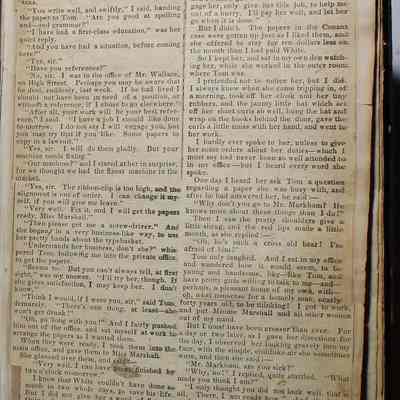 "You write well, and swiftly," I said, handing
the paper to Tom. "Are you good at spelling
and grammar?"
"I have had a first-class education," was her
quiet reply.
"And you have had a situation, before coming
here?"
"Yes, sir."
"Have you references?"
"No, sir. I was in the office of Mr. Wallace,
on High Street. Perhaps you may be aware that
he died, suddenly, last week. If he had lived I
should not have been in need of a position, or
without a reference, if I chose to go elsewhere."
"After all, your work will be your best refer-
ence," I said. "I have a job I should like done
to-morrow. I do not say I will engage you, but
you may try that if you like. Some papers to
copy in a lawsuit."
"Yes, sir. I will do them gladly. But your
machine needs fixing."
"Our machine?" and I stared at her in surprise,
for we thought we had the finest machine in the
market.
"Yes, sir. The ribbon-clip is too high, and the
alignment is out of order. I can change it my-
self, if you will give me leave."
"Very well. Fix it, and I will get the papers
ready, Miss Marshall."
"Then please get me a screw-driver." And
she began in a very business-like way, to use
her pretty hands about the typebasket.
"Understands her business, don't she?" whis-
pered Tom, following me into the private office,
to get the papers.
"Seems to. But you can't always tell, at first
sight," was my answer. "I'll try her, though. If
she gives satisfaction, I may keep her. I don't
know."
"Think I would, if I were you, sir," said Tom,
demurely. "There's one thing, at least—she
won't get drunk."
"Oh, go along with you!" And I fairly pushed
him out of the office, and set myself at work to
arrange the papers as I wanted them.
When they were ready, I took them into the
main office, and gave them to Miss Marshall.
She glanced over them, and said:—
"Very well. I can have these finished by
two o'clock to-morrow."
I know that White couldn't have done so
in two whole days, to save his life.
But I did not give her a
gage her, only give her this job, to help me
out of a hurry. I'll pay her well, and let her
go when it is done."
But I didn't. The papers in the Conant
case were gotten up just as I liked them, and
she offered to stay for ten dollars less on
the month than I had paid White.
So I kept her, and sat in my own den watch-
ing her, while she worked in the outer room
where Tom was.
I pretended not to notice her, but I did.
I always knew when she came tripping in, of
a morning, took off her cloak and her tiny
rubbers, and the jaunty little hat which set
off her short curls so well, hung the hat and
wrap on the hooks behind the door, gave the
curls a little muss with her hand, and went to
her work.
I hardly ever spoke to her, unless to give
her some orders about her duties—which I
must say had never been so well attended to
in my office—but I heard every word she
spoke.
One day I heard her ask Tom a question
regarding a paper she was busy with, and
after he had answered her, he said:—
"Why don't you go to Mr. Markham? He
knows more about these things than I do!"
Then I saw the pretty shoulders give a
little shrug, and the red lips made a little
mouth, as she replied:—
"Oh, he's such a cross old bear! I'm
afraid of him!"
Tom only laughed. And I sat in my office
and wondered how it would seem, to be
young and handsome, like—like Tom, and
have pretty girls willing to talk to me—and—
perhaps, a pleasant home of my own, with—
oh, what nonsense for a homely man, nearly
forty years old, to be thinking! I got to work
and put Minnie Marshall and all other women
out of my mind.
But I must have been crosser than ever. For
a day or two later, as I gave her directions for
the day, I observed her looking gravely into my
face, with the simple, childlike air she sometimes
wore, and then she said:—
"Mr. Markham, are you sick?"
"Why, no!" I replied, quite startled. "What
made you think I am?"
"I only thought you did not look well, that is
all. There, I am ready now,